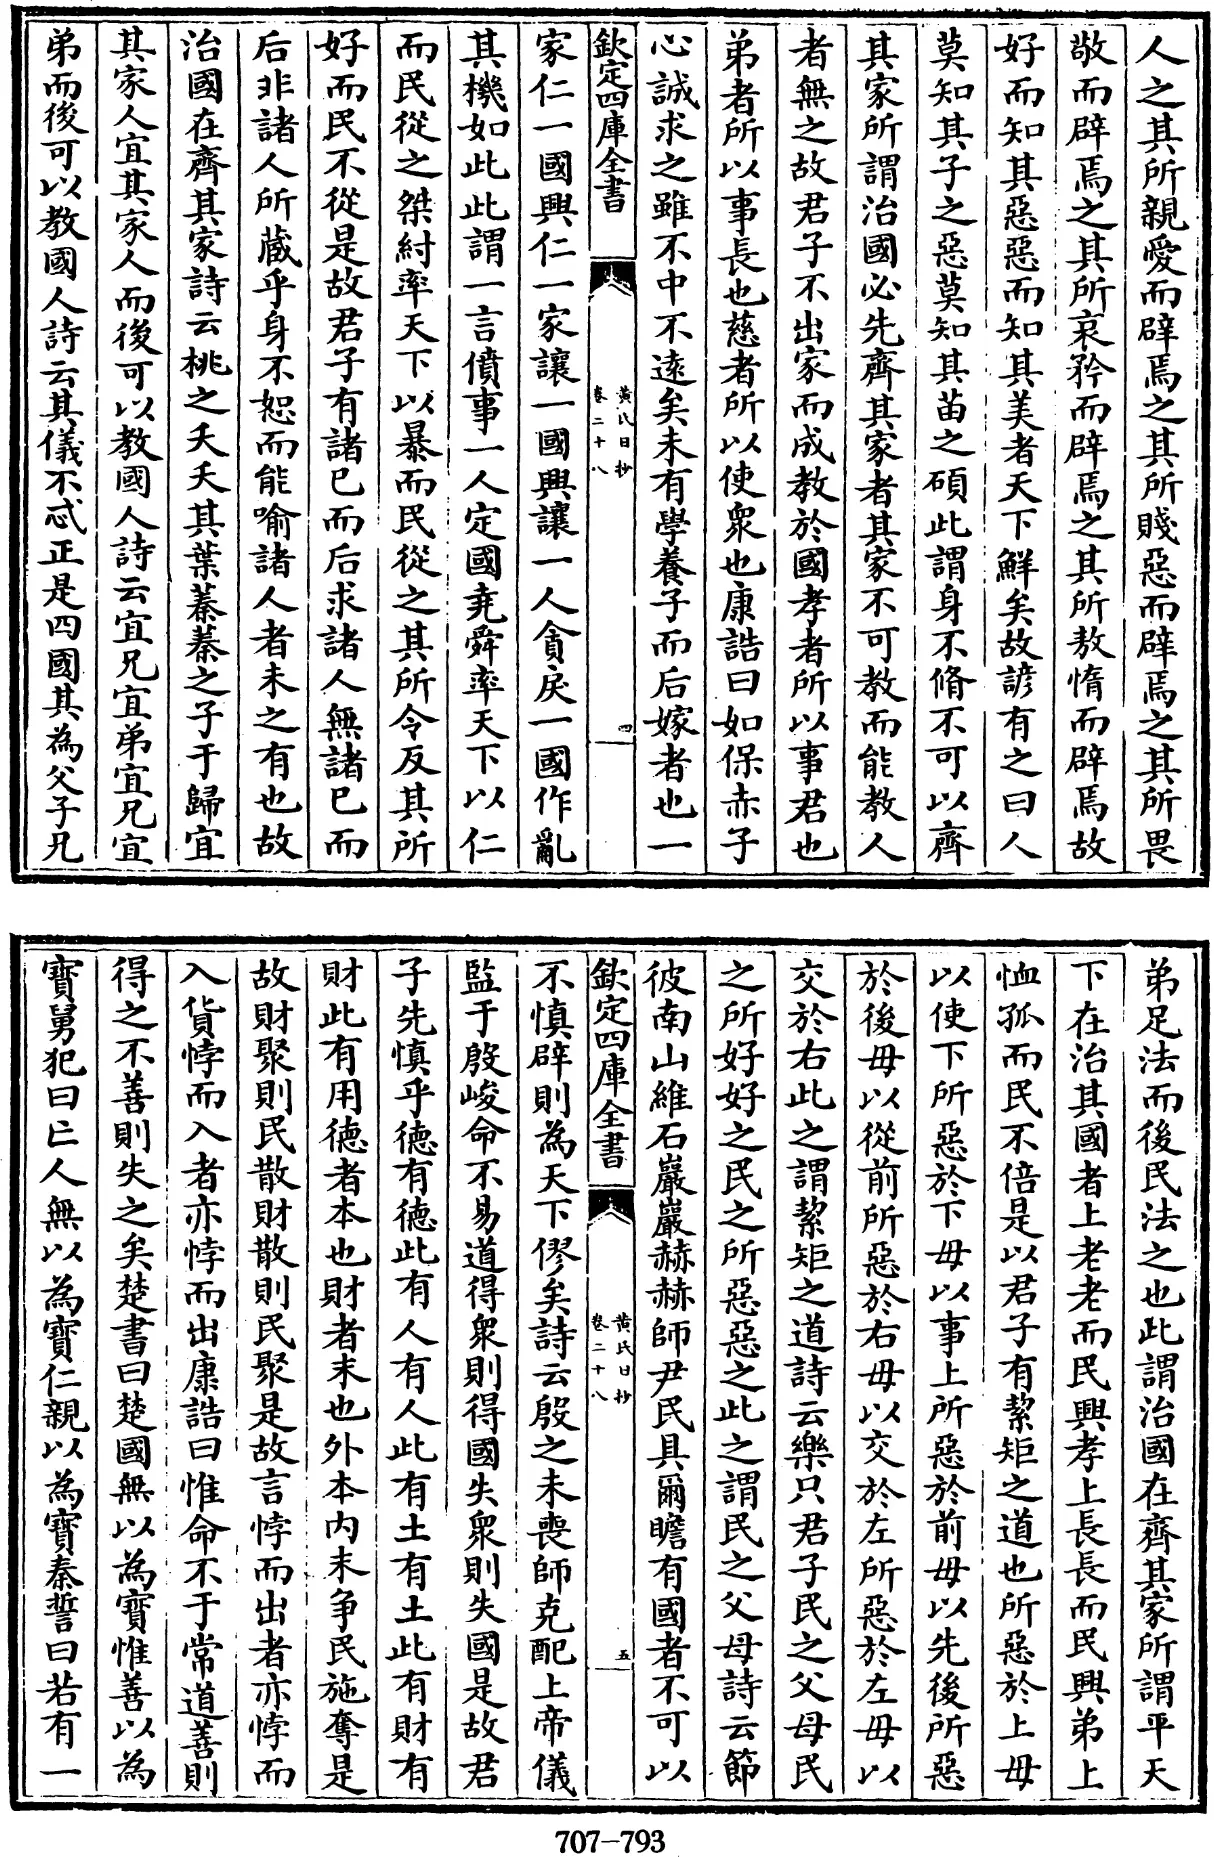 人之其所親愛而辟焉之其所賤惡而辟焉之其所畏
敬而辟焉之其所哀矜而辟焉之其所敖惰而辟焉故
好而知其惡惡而知其美者天下鮮矣故諺有之曰人
莫知其子之惡莫知其苗之碩此謂身不脩不可以齊
其家所謂治國必先齊其家者其家不可教而能教人
者無之故君子不出家而成教於國孝者所以事君也
弟者所以事長也慈者所以使衆也康誥曰如保赤子
心誠求之雖不中不遠矣未有學養子而后嫁者也一
欽定四庫全書
黃氏日抄
卷二十八
四
家仁一國興仁一家讓一國興讓一人貪戾一國作亂
其機如此此謂一言僨事一人定國堯舜率天下以仁
而民從之桀紂率天下以暴而民從之其所令反其所
好而民不從是故君子有諸已而后求諸人無諸已而
后非諸人所蔵乎身不恕而能喻諸人者未之有也故
治國在齊其家詩云桃之夭夭其葉蓁蓁之子于歸宜
其家人宜其家人而後可以教國人詩云宜兄宜弟宜兄宜
弟而後可以教國人詩云其儀不忒正是四國其為父子兄
弟足法而後民法之也此謂治國在齊其家所謂平天
下在治其國者上老老而民興孝上長長而民興弟上
恤孤而民不倍是以君子有絜矩之道也所惡於上毋
以使下所惡於下毋以事上所惡於前毋以先後所惡
於後毋以從前所惡於右毋以交於左所惡於左毋以
交於右此之謂絜矩之道詩云樂只君子民之父母民
之所好好之民之所惡惡之此之謂民之父母詩云節
彼南山維石巖巖赫赫師尹民具爾瞻有國者不可以
欽定四庫全書
黃氏日抄
卷二十八
五
不慎辟則為天下僇矣詩云殷之未喪師克配上帝儀
監于殷峻命不易道得衆則得國失衆則失國是故君
子先慎乎德有德此有人有人此有土有土此有財有
財此有用德者本也財者末也外本内末争民施奪是
故財聚則民散財散則民聚是故言悖而出者亦悖而
入貨悖而入者亦悖而出康誥曰惟命不于常道善則
得之不善則失之矣楚書曰楚國無以為寳惟善以為
寳舅犯曰亡人無以為寳仁親以為寳秦誓曰若有一
707-793